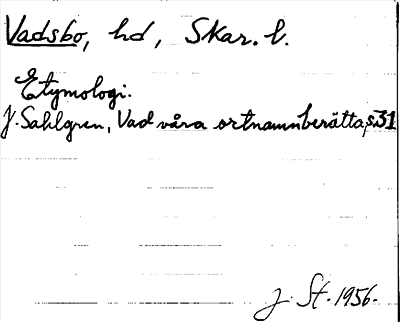 Vadsbo, hd, Skar. l.
Etymologi.
J. Sahlgren, Vad våra ortnamn berätta, s. 31
J. St. 1956.